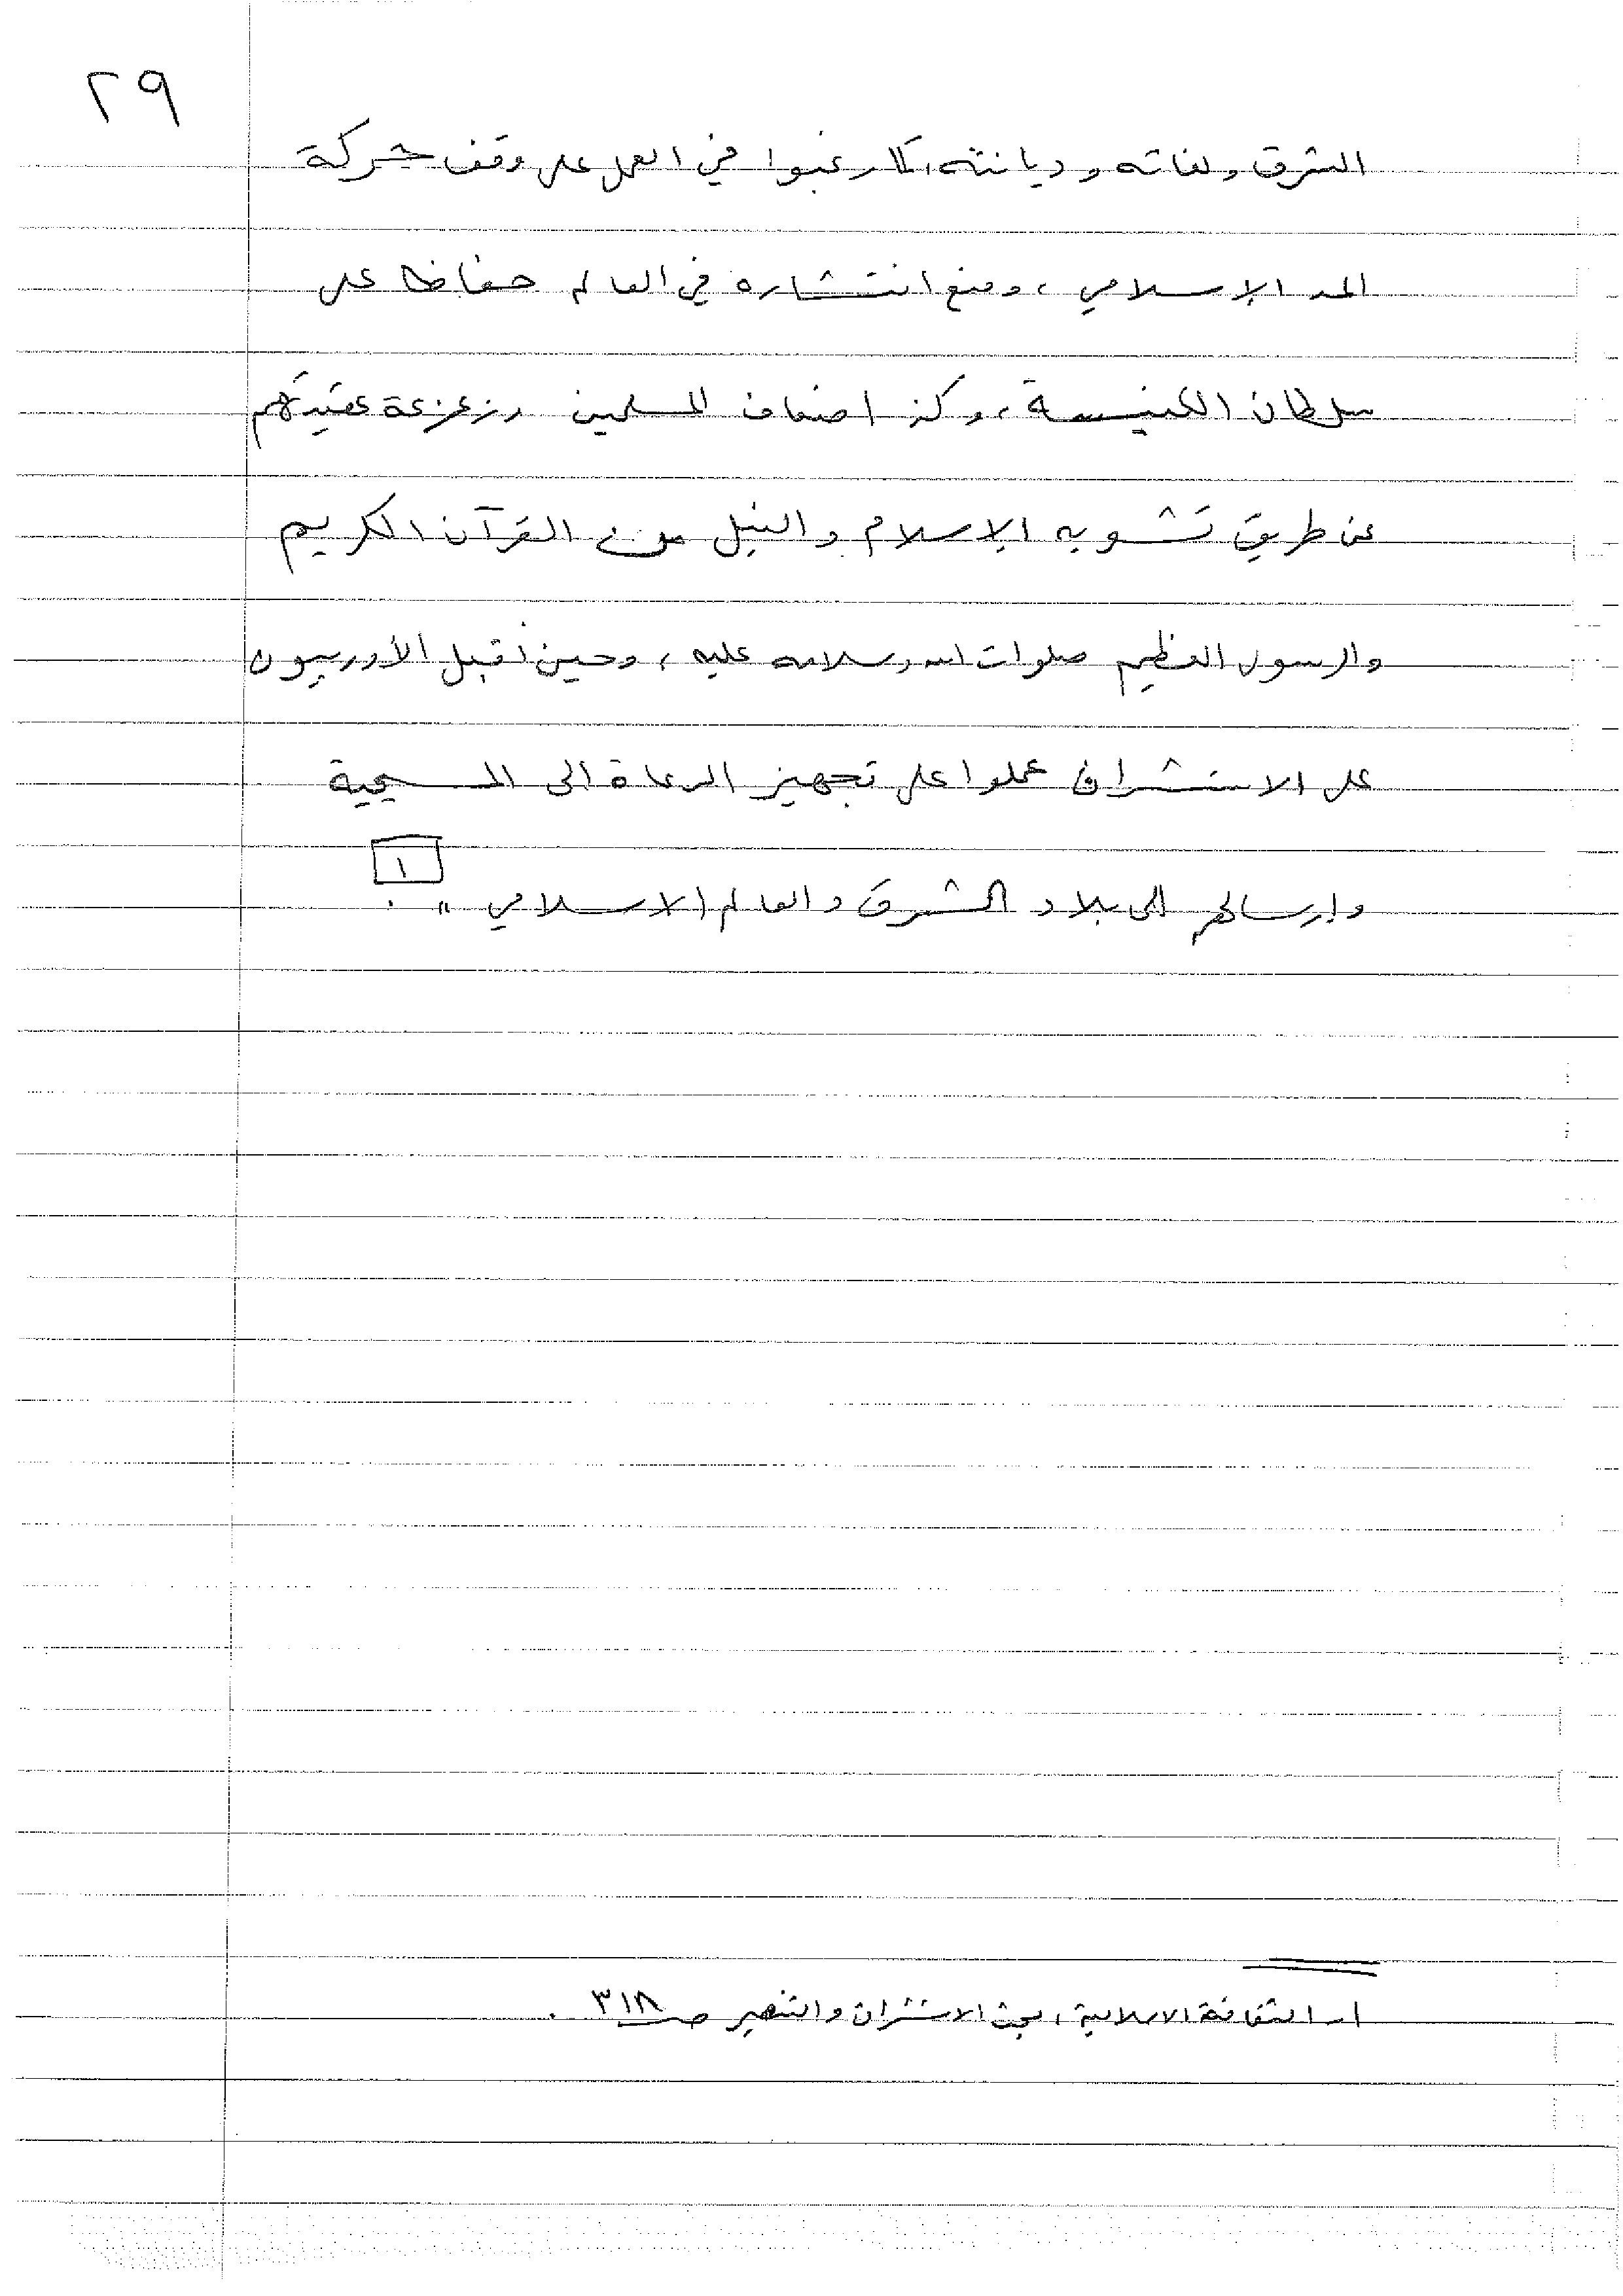 ٢٩
الشرق ولغاته وديانته، كما رغبوا في العمل على وقف حركة
المد الإسلامي، ومنع انتشاره في العالم حفاظا على
سلطان الكنيسة، وكذا اضعاف المسلمين وزعزعة عقيدتهم
عن طريق تشويه الإسلام والنيل من القرآن الكريم
والرسول العظيم صلوات الله وسلامه عليه، وحين أقبل الأوربيون
على الاستشراق عملوا على تجهيز الدعاة الى المسيحية
وإرسالهم الى بلاد الشرق والعالم الاسلامي" . [١]
١ـ الثقافة الاسلامية، بحث الاستشراق والتنصير صـ ٣١٨ .